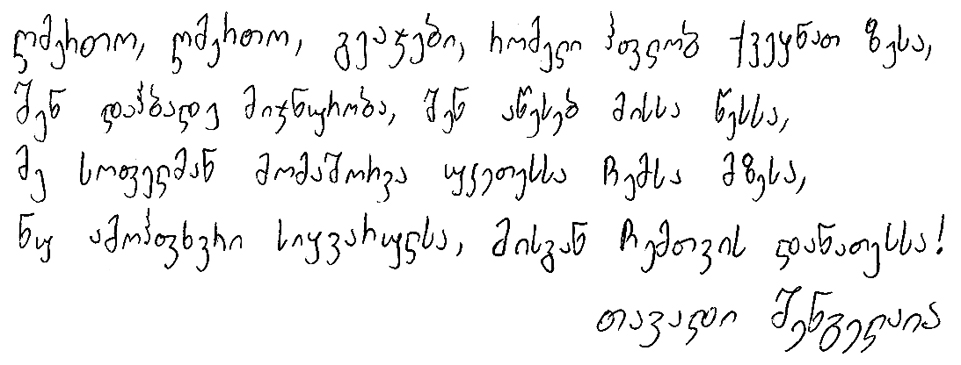 ღმერთო, ღმერთო, გეაჯები, რომელი ჰფლობ ქვეყნათ ზესა,
შენ დაჰბადე მიჯნურობა, შენ აწესებ მისსა წესსა,
მე სოფელმან მომაშორვა უკეთესსა ჩემსა მზესა,
ნუ ამოჰფხვრი სიყვარულსა, მისგან ჩემთვის დანათესსა!
თავადი შენგელაია